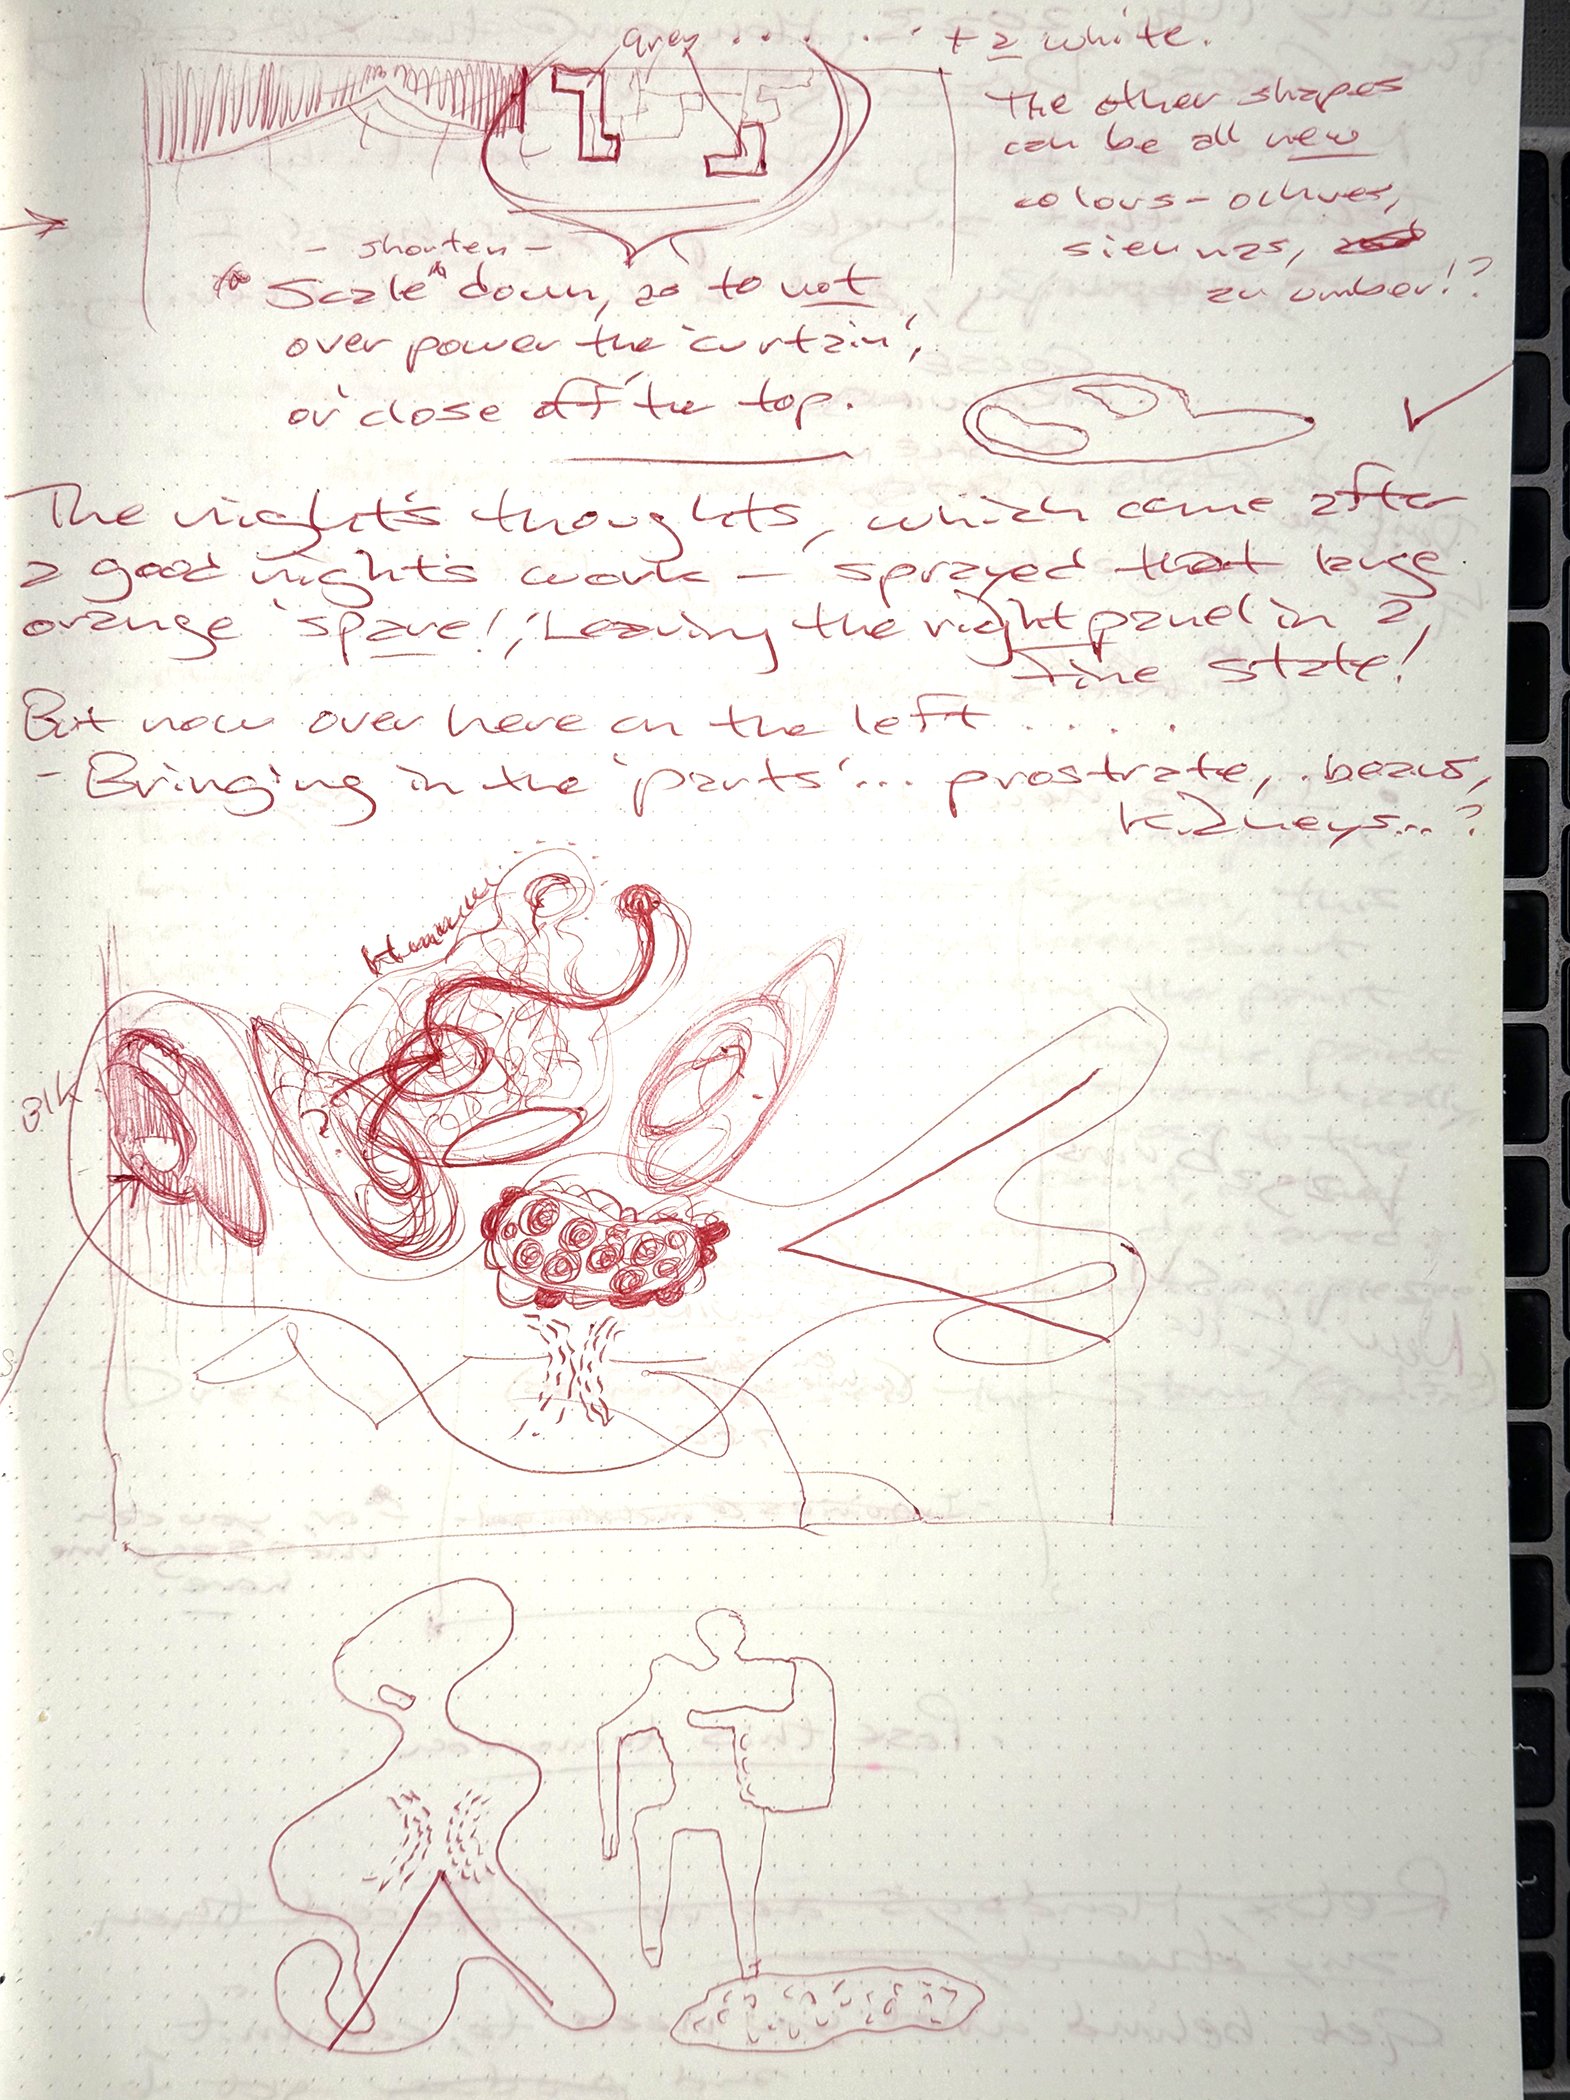 grey . . . . . . + 2 white.
The other shapes
can be all new
colours - ochres,
siennas,
an umber!?
- shorten -
Scale down, as to not
over power the 'curtain',
or 'close off' the top.
The night's thoughts, which came after
a good night's work - sprayed that large
orange 'spare!', Leaving the right panel in a
fine state!
But now over here on the left . . . . .
- Bringing in the 'parts' ... prostrate, beans,
kidneys...?
Blk